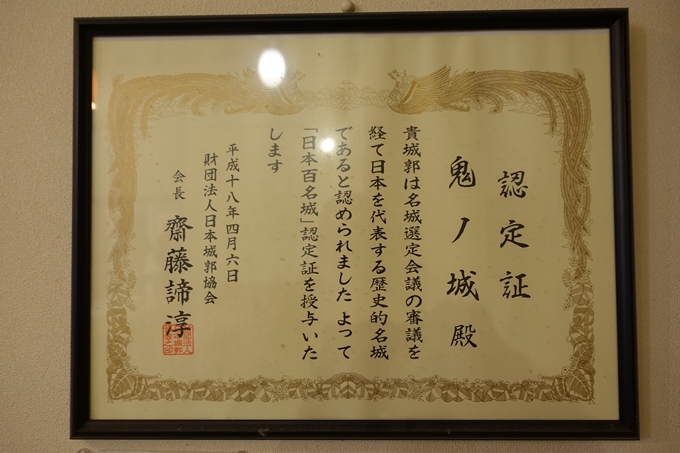 認定証
鬼ノ城殿
貴城郭は名城選定会議の審議を
経て日本を代表する歴史的名城
であると認められました よって
「日本百名城」認定証を授与いた
します
平成十八年四月六日
財団法人日本城郭協会
会長 齋藤諦淳